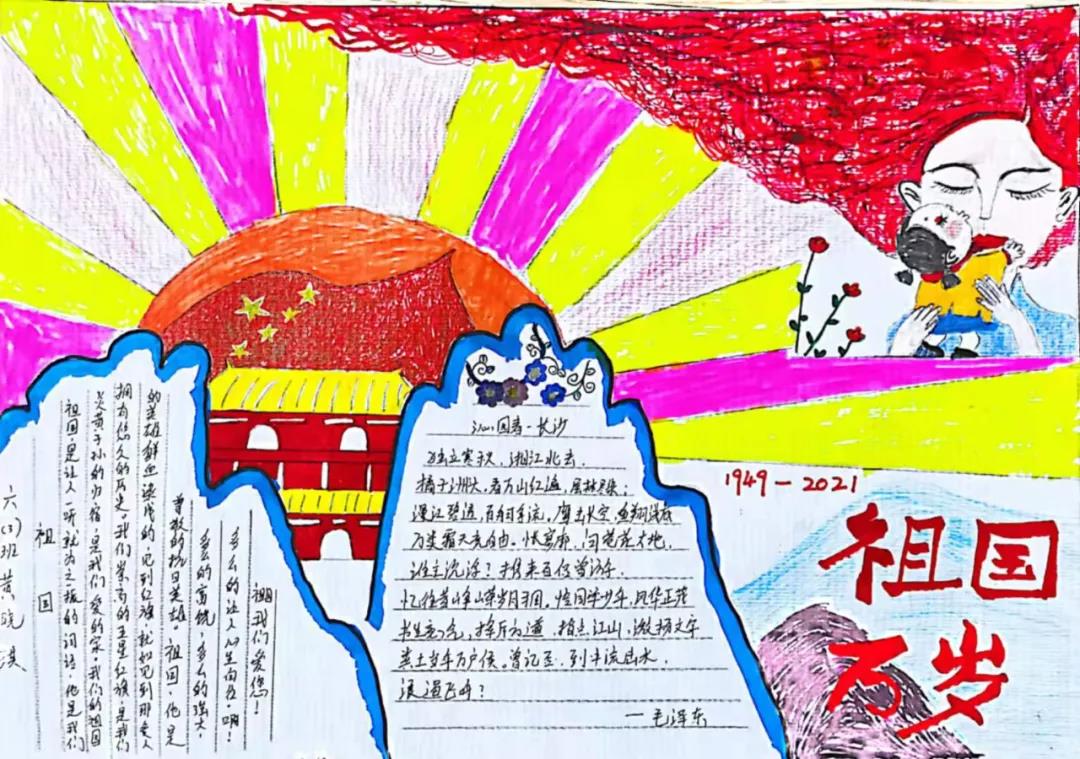 六(3)班 黄
祖国
祖国,是让人一听就为之振的词语,他是我们
炎黄子孙的归宿,是我们爱的家。我们的祖国
拥有悠久的历史。我们崇高的五星红旗,是我们
的英雄鲜血染成的,见到红旗,就如见到那爱人
尊敬的抗日英雄。祖国,他是
多么的富饶,多么的强大,
多么的让人心生向往,啊!
祖我们爱您!
沁园春-长沙
独立寒秋,湘江北去,
橘子洲头,看万山红遍,层林尽染;
漫江碧透,百舸争流,鹰击长空,鱼翔浅底
万类霜天竞自由。怅寥廓,问苍茫大地,
谁主沉浮?携来百侣曾游.
忆往昔峥嵘岁月稠,恰同学少年,风华正茂
书生意气,挥斥方遒,指点江山,激扬文字
粪土当年万户侯。曾记否,到中流击水,
浪遏飞舟?
—毛泽东
1949-2021
祖国
万岁